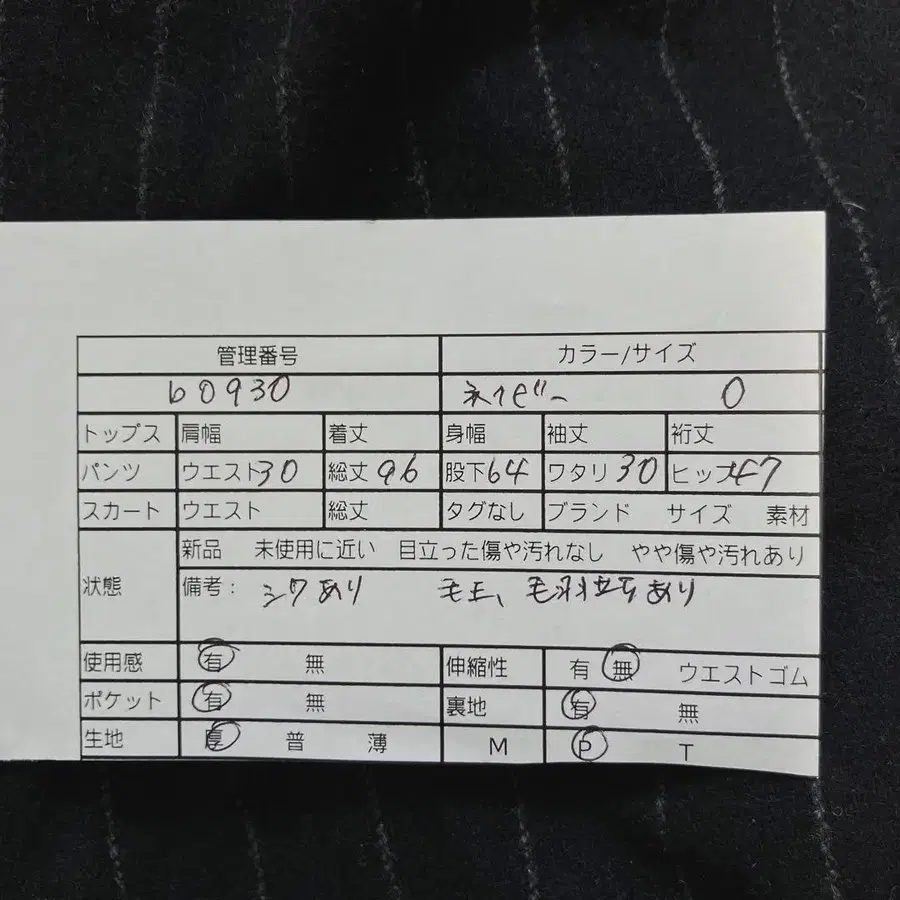 管理番号 カラー/サイズ
b0930 ネイビー 0
トップス 肩幅 着丈 身幅 袖丈 裄丈
パンツ ウエスト30 総丈96 股下64 ワタリ30 ヒップ47
スカート ウエスト 総丈 タグなし ブランド サイズ 素材
新品 未使用に近い 目立った傷や汚れなし やや傷や汚れあり
状態 備考: シワあり 毛玉、毛羽立ちあり
使用感 有 無 伸縮性 有 無 ウエストゴム
ポケット 有 無 裏地 有 無
生地 厚 普 薄 M P T